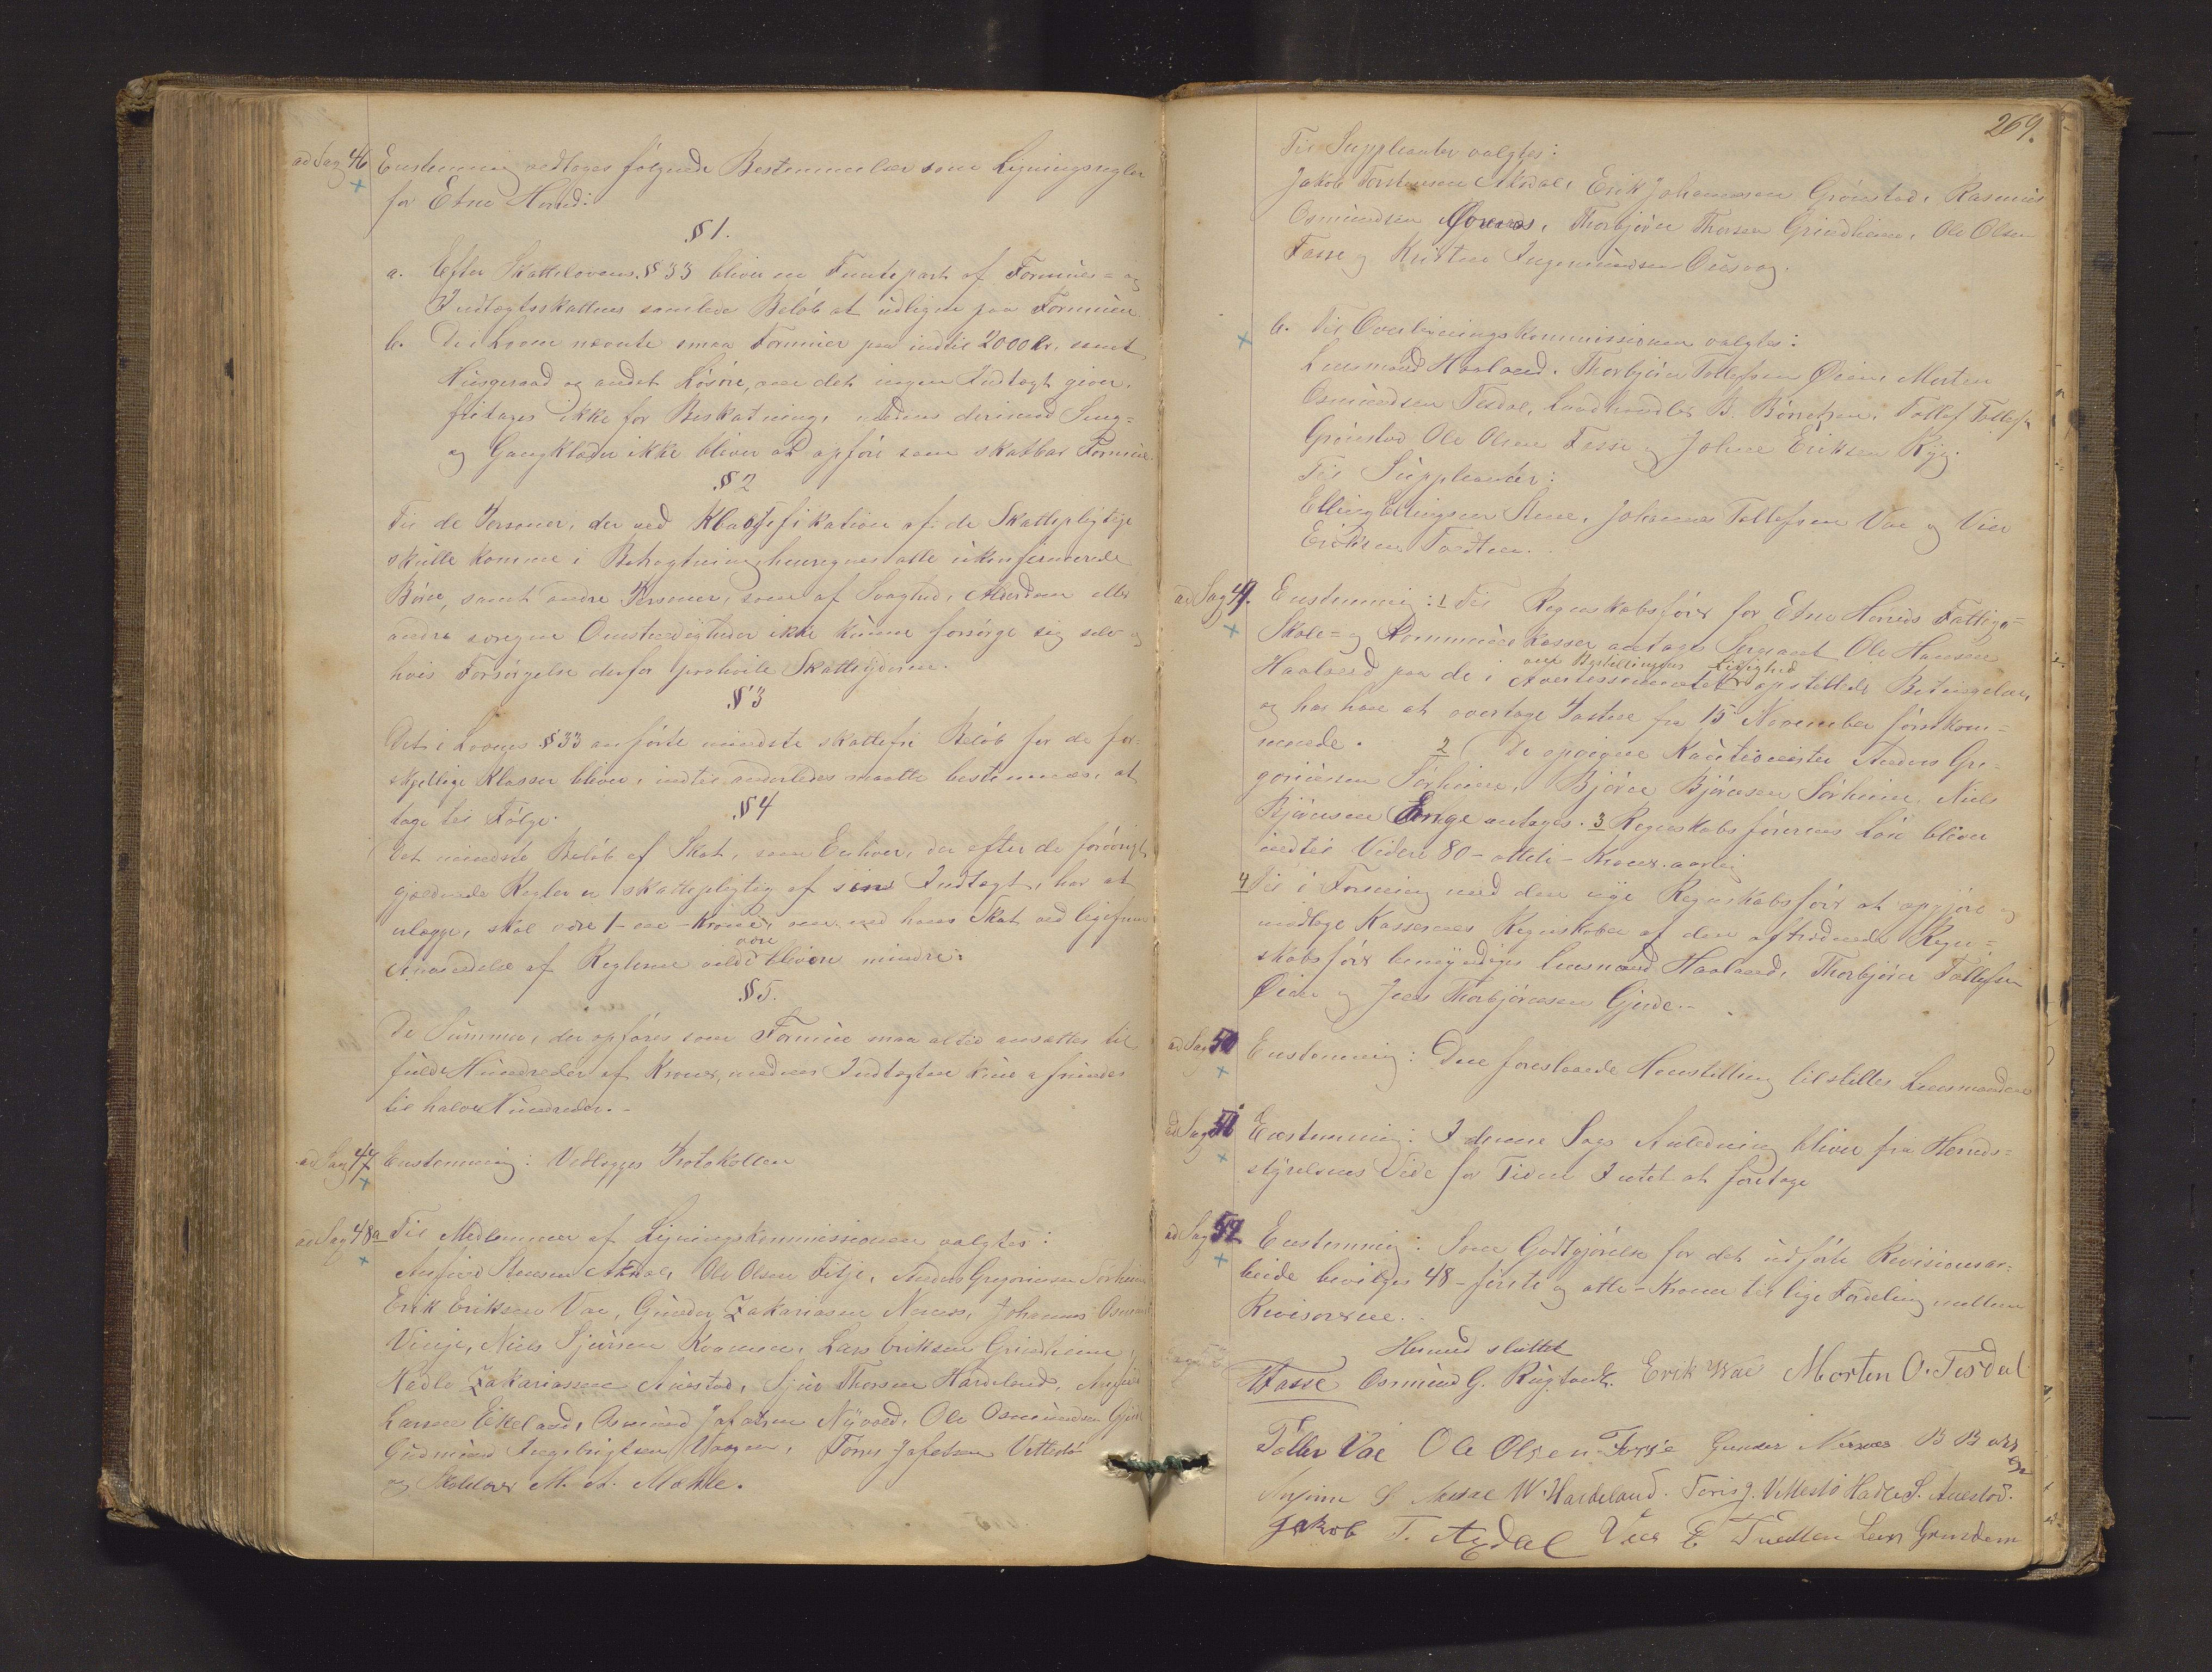 ad Sag 46 Enstemmig vedtages følgende Bestemmelser som Ligningsregler
for Etne Herred:
§ 1.
a. Efter Skattelovens § 33 bliver en Femtepart af Formues- og
Indtægtsskattens samlede Beløb at udligne paa Formuen.
b. De i Loven nævnte smaa Formuer paa indtil 2000 Kr. samt
Husgeraad og andet Løsøre, om det ingen Indtægt giver,
fritages ikke for Beskatning, medens derimod Seng-
og Gangklæder ikke bliver at opføre som skatbar Formue.
§ 2
Til de Personer, der ved Klassifikation af de Skattepligtige
skulle komme i Betragtning henregnes alle ukonfirmerede
Børn, samt andre Personer, som af Svaghed, Alderdom eller
andre Omstændigheder ikke kunne forsørge sig selv og
hvis Forsørgelse derfor paahvile Skatteyderne.
§ 3
Det i Lovens § 33 anførte mindste skattefri Beløb for de for-
skjellige Klasser bliver, indtil anderledes maatte bestemmes, at
tage til Følge.
§ 4
Det mindste Beløb af Skat, som Enhver, der efter de forøvrigt
gjældende Regler er skattepligtig af sin Indtægt, har at
udlægge, skal være 1 - en - Krone, om end hans Skat ved ligefrem
være
Anvendelse af Reglerne vilde bleven mindre.
§ 5.
De Summer, der opføres som Formue maa altid ansættes til
fulde Hundreder af Kroner, medens Indtægten kun afrundes
til halve Hundreder. -
ad Sag 47 Enstemmig: Vedlægges Protokollen
ad Sag 48 a Til Medlemmer af Ligningskommissionen valgtes:
Ansjend Akdal, Ole Olsen Fitje, Anders Gregoriusen Sørheim
Erik Eriksen Vae, Gunder Zakariasen Nernes, Johannes Osmund
Vinje, Niels Sjursen Kvamen, Lars Eriksen Grindheim,
Hadle Zakariassen Austad, Sjur Thorsen Hardeland,
Larsen Eikeland, Osmund Jafetsen Nyvold, Ole Osmundsen
Gudmund Ingebrigtsen Vaagen, Tørris Jafetsen Vettestø
og M. Mæhle.
269.
Til Suppleanter valgtes:
Jakob Torstensen Akdal, Erik Johannessen Grønstad, Rasmus
Osmundsen Øvernes, Thorbjørn Thorsen Grindheim, Ole Olsen
Fosse og Kristen Ingemundsen Ousvag.
b. Til Overligningskommissionen valgtes:
Lensmand Haaland, Thorbjørn Tollefsen Øien, Morten
Osmundsen Tesdal, Landhandler B. Børretzen, Tollef Tollefs.
Grønstad Ole Olsen Fosse og Johne Eriksen Ryg.
Til Suppleanter:
Elling Ellingsen Stene, Johannes Tollefsen Vae og Vier
Eriksen Tvedten.
ad Sag 49. Enstemmig: 1 Til Regnskabsfører for Etne Herreds Fattig-
Skole- og Kommunekasser antages Sergeant Ole Hansen
om Bestillingens Ledighed
Haaland paa de i Avertissementet opstillede Betingelser,
og har han at overtage Posten fra 15 November førstkom-
mende. 2 De opgivne Kautionister Anders Gre-
goriusen Sørheim, Bjørn Bjørnsen Sørheim, Niels
Bjørnsen Enge antages. 3 Regnskabsførerens Løn bliver
indtil Videre 80 - otteti - Kroner aarlig
4 Til i Forening med den nye Regnskabsfører at opgjøre og
modtage Kassernes Regnskaber af den aftrædende Regn-
skabsfører bemyndiges Lensmand Haaland, Thorbjørn Tollefsen
Øien og Jens Thorbjørnsen Gjerde. -
ad Sag 50 Enstemmig: Den foreslaaede Henstilling tilstilles Lensmanden
ad Sag 51 Enstemmig: I denne Sags Anledning bliver fra Herreds-
styrelsens Side for Tiden Intet at foretage
ad Sag 52 Enstemmig: Som Godtgjørelse for det udførte Revisionsar-
beide bevilges 48 - førti og otte - Kroner til lige Fordeling mellem
Revisorerne.
Hermed sluttet
Fasse Osmund G. Rygtvedt. Erik Vae Morten O. Tesdal
Tollev Vae Ole Olsen Fosse Gunder Nernes B Børretzen
Ansjinn S Akdal W. Hardeland. Tøris J. Vettestø Hadle S. Austad.
Jakob T. Axdal Vier E Tvedten Lars Grindem